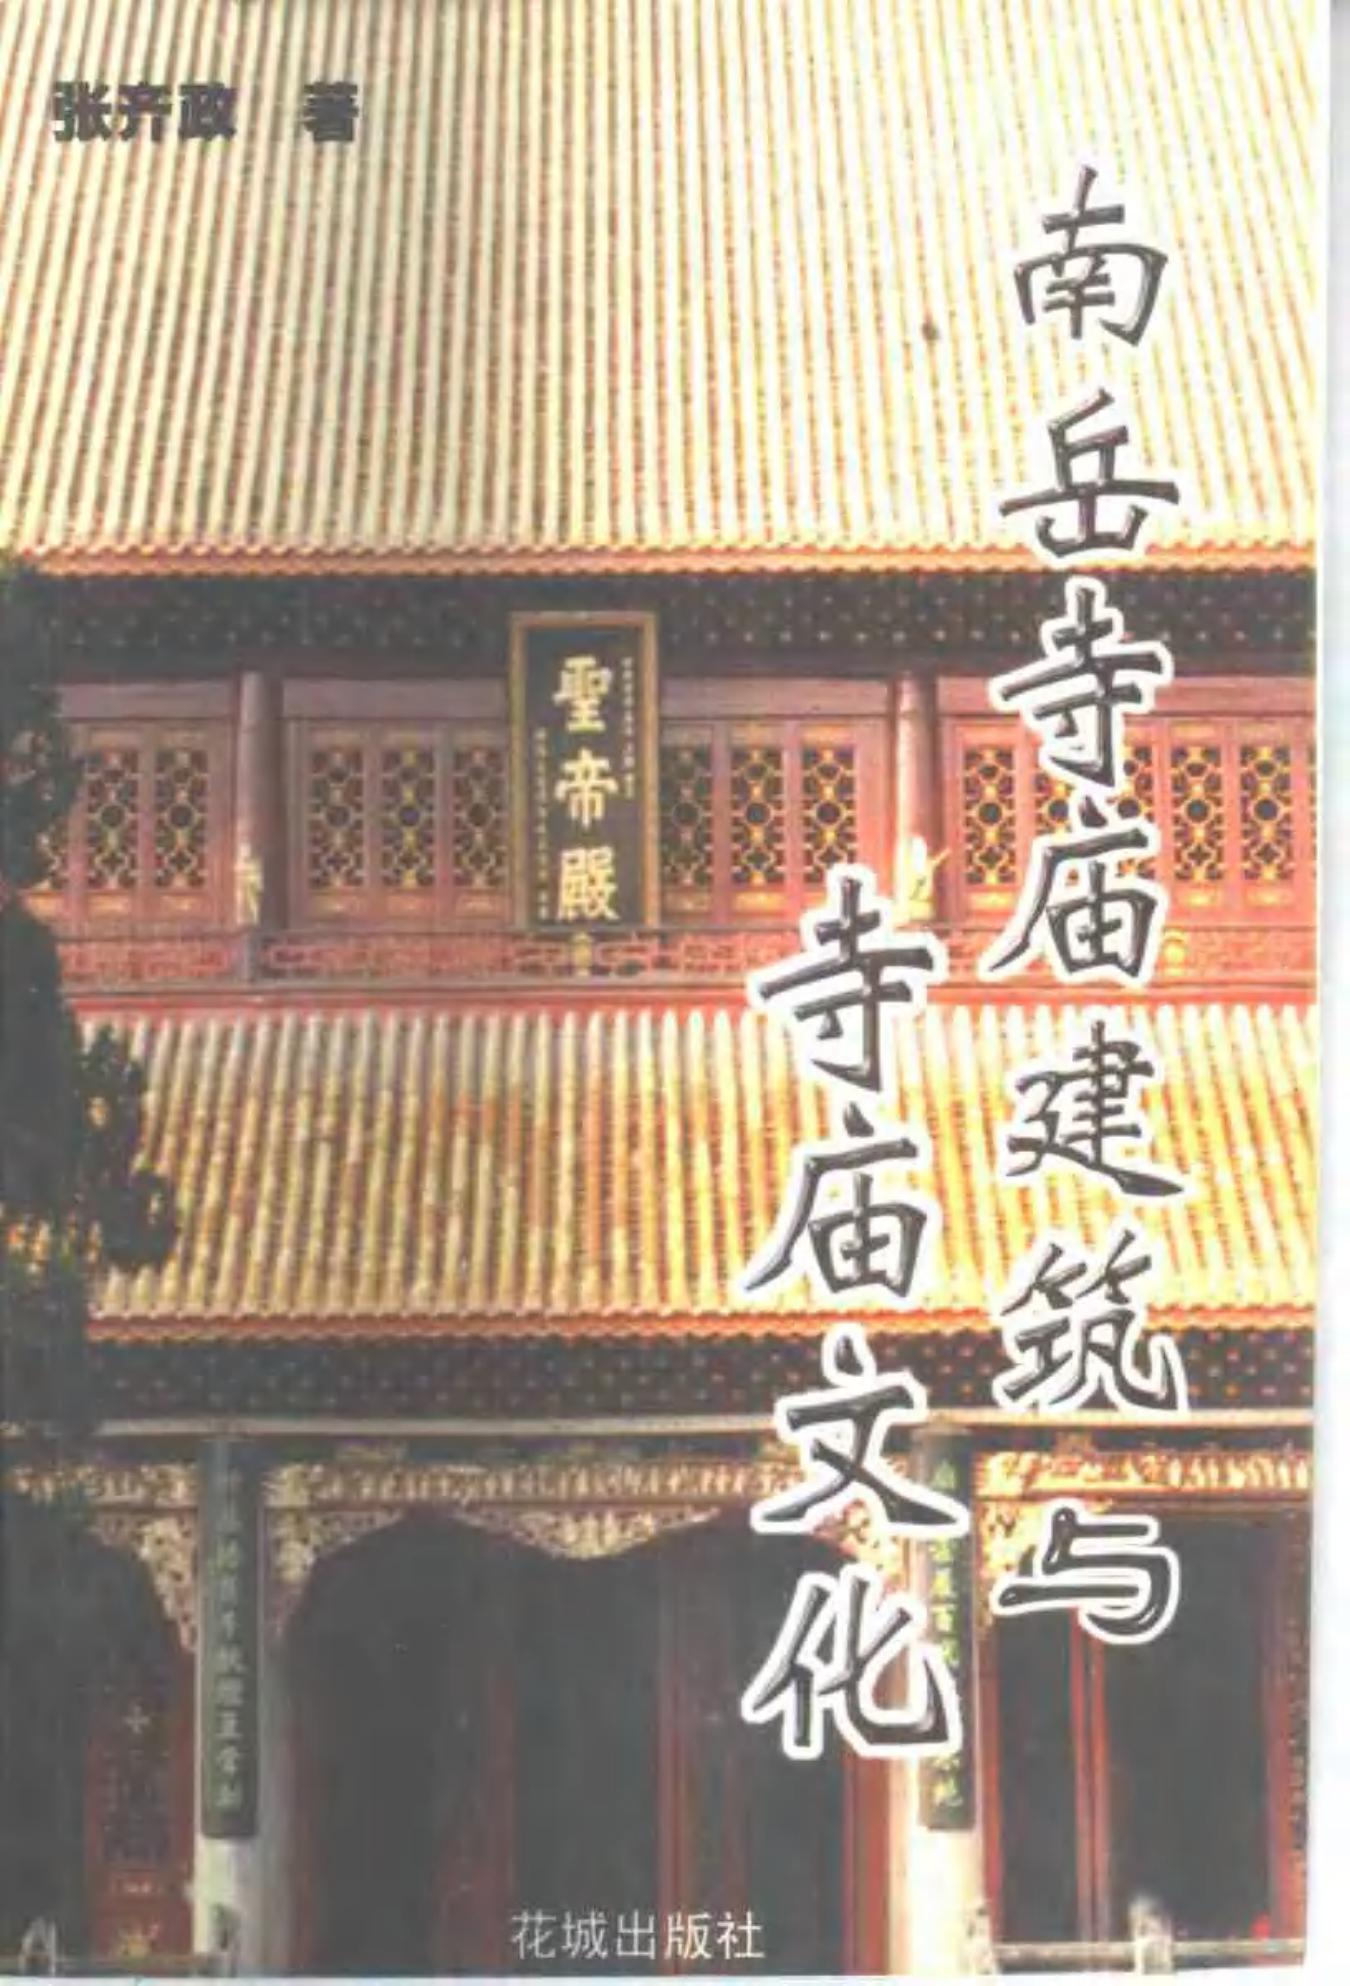 张齐政 著
南岳寺庙建筑与
寺庙文化
聖帝殿
花城出版社